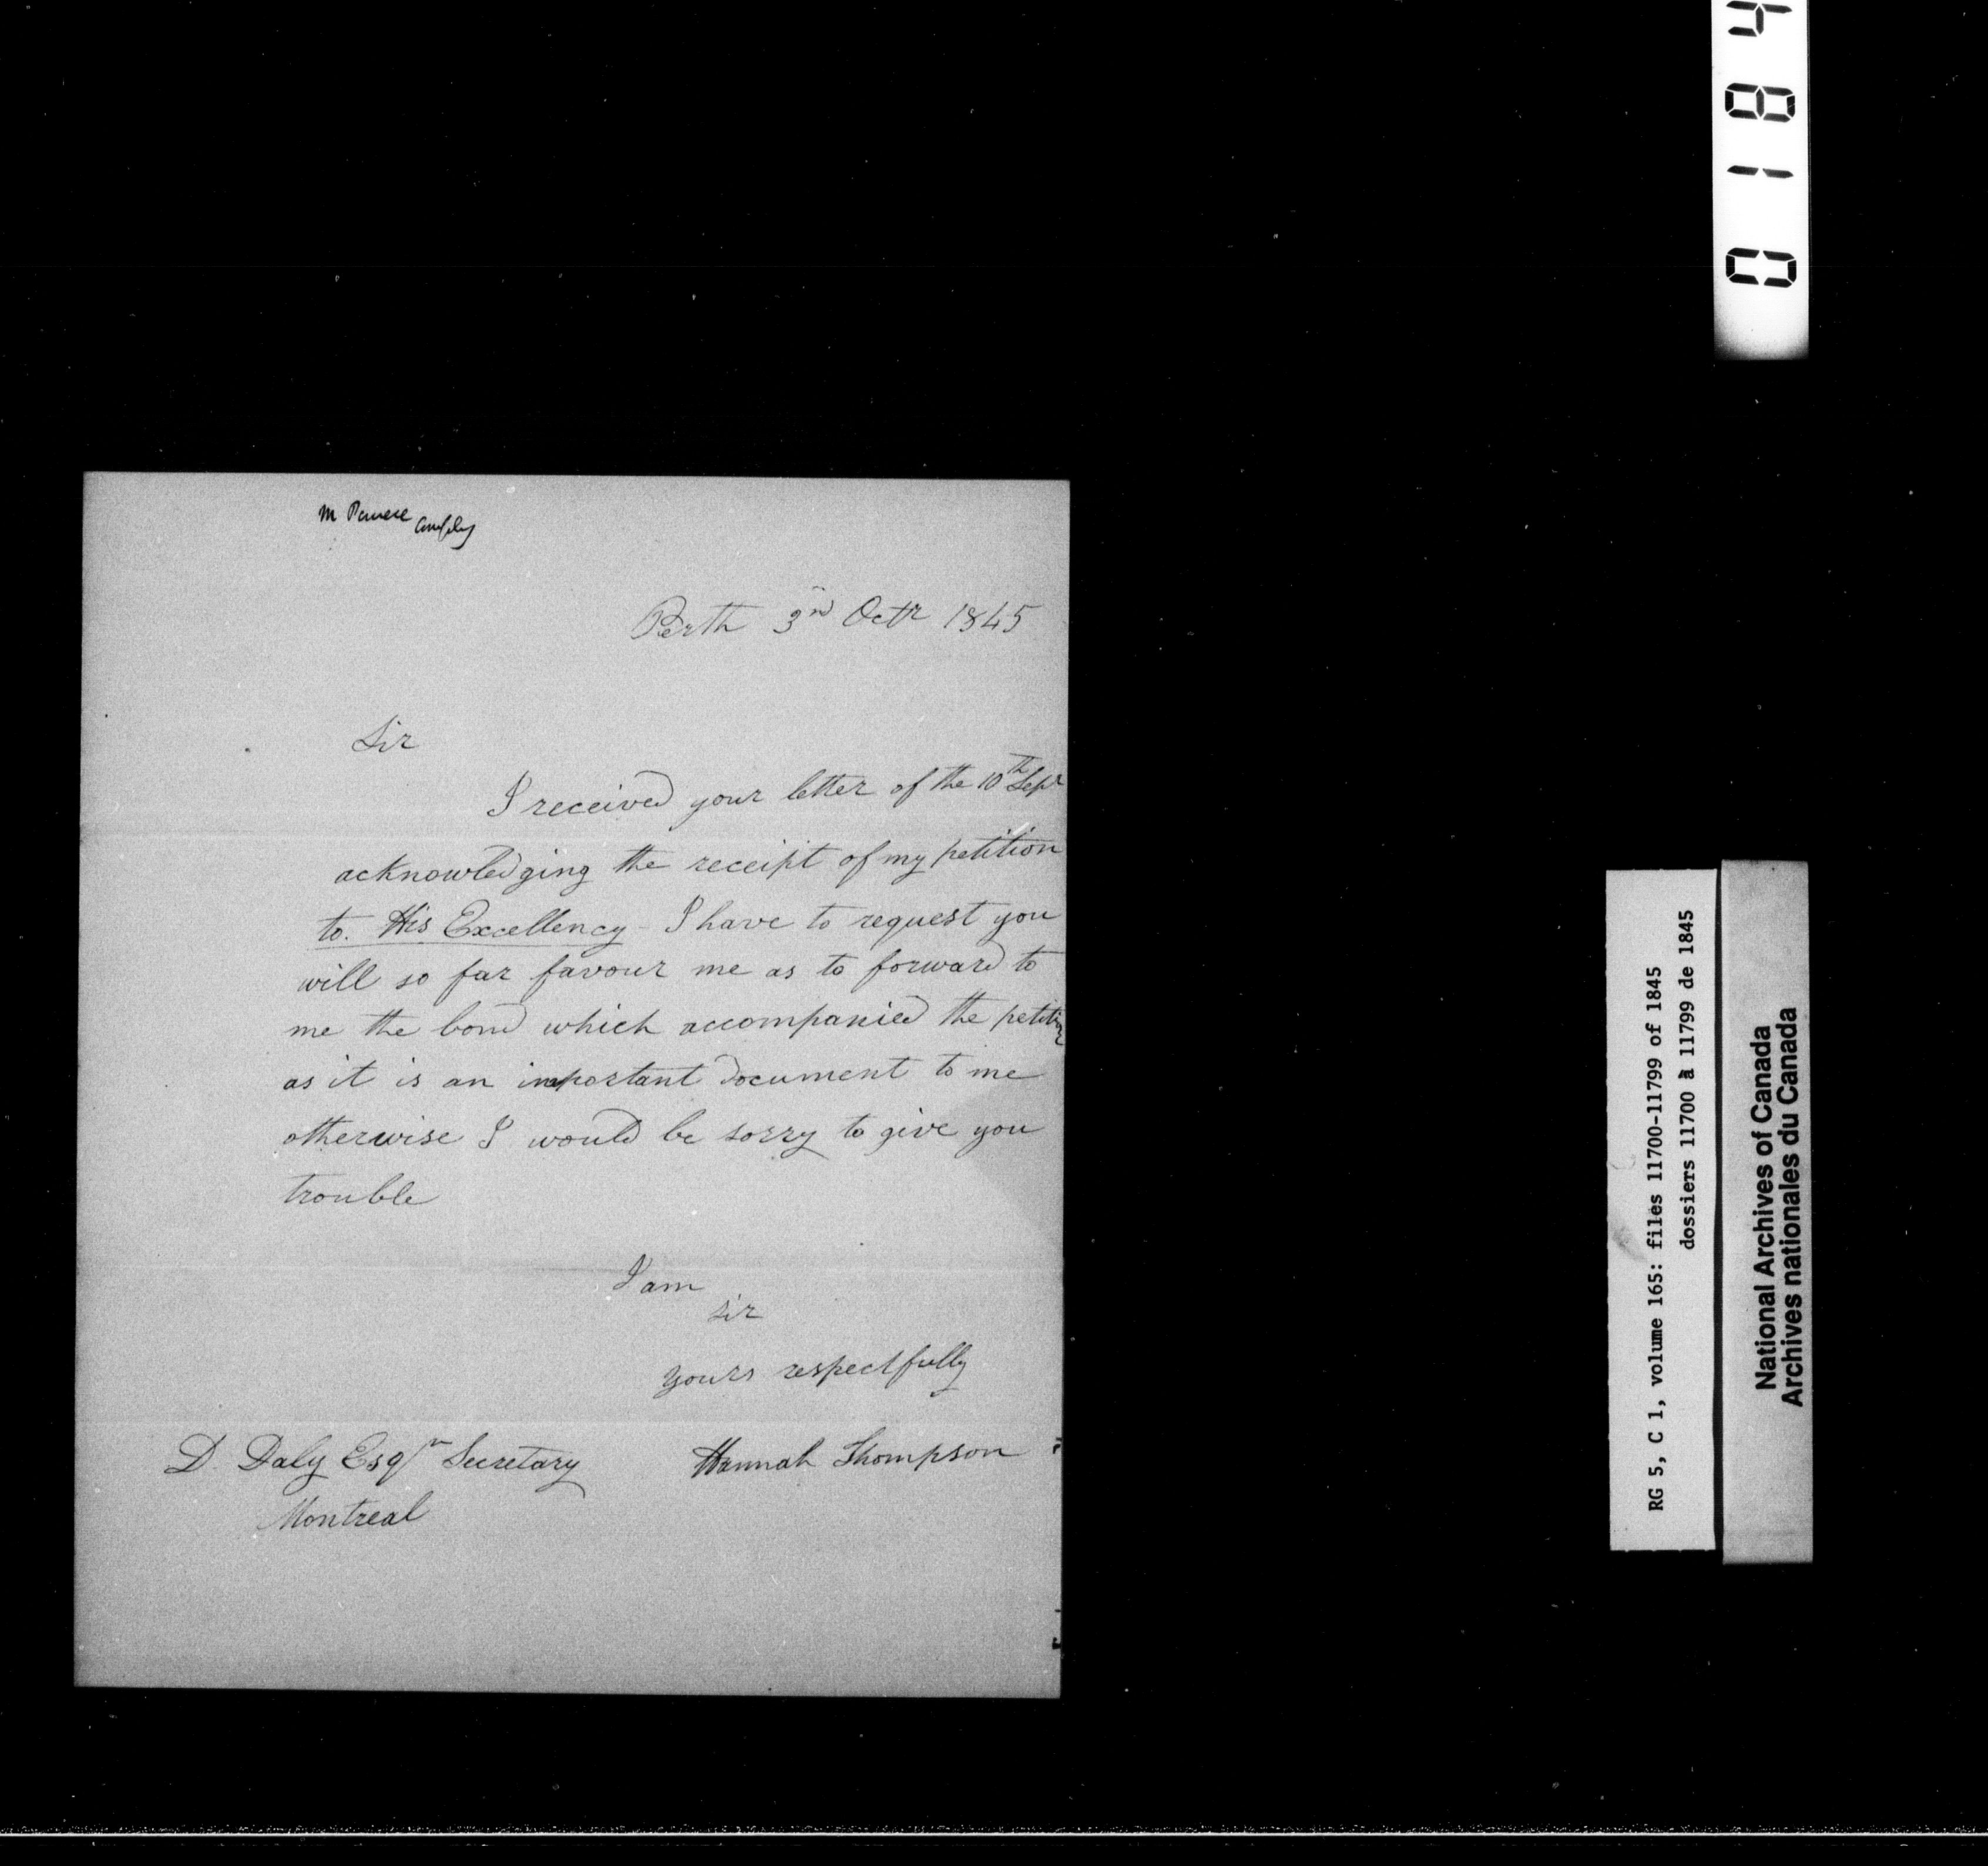 Perth 3rd Octr 1845
Sir
I received your letter of the 10th Sepr
acknowledging the receipt of my petition
to. His Excellency - I have to request you
will so far favour me as to forward to
me the bond which accompanied the petition
as it is an important document to me
otherwise I would be sorry to give you
trouble
I am
sir
yours respectfully
D. Daly Esqr Secretary Hannah Thompson
Montreal
0184
RG 5, C 1, volume 165: files 11700-11799 of 1845
dossiers 11700 à 11799 de 1845
National Archives of Canada
Archives nationales du Canada